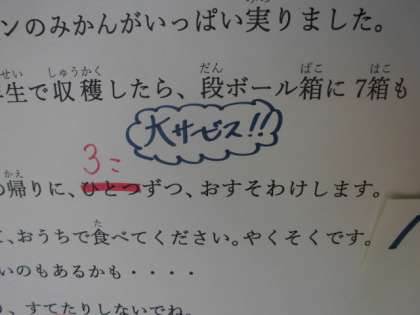 ンのみかんがいっぱい実りました。
生で収穫したら、段ボール箱に7箱も
大サービス!!
3こ
の帰りに、ひとつずつ、おすそわけします。
、おうちで食べてください。やくそくです。
いのもあるかも・・・・
、すてたりしないでね。